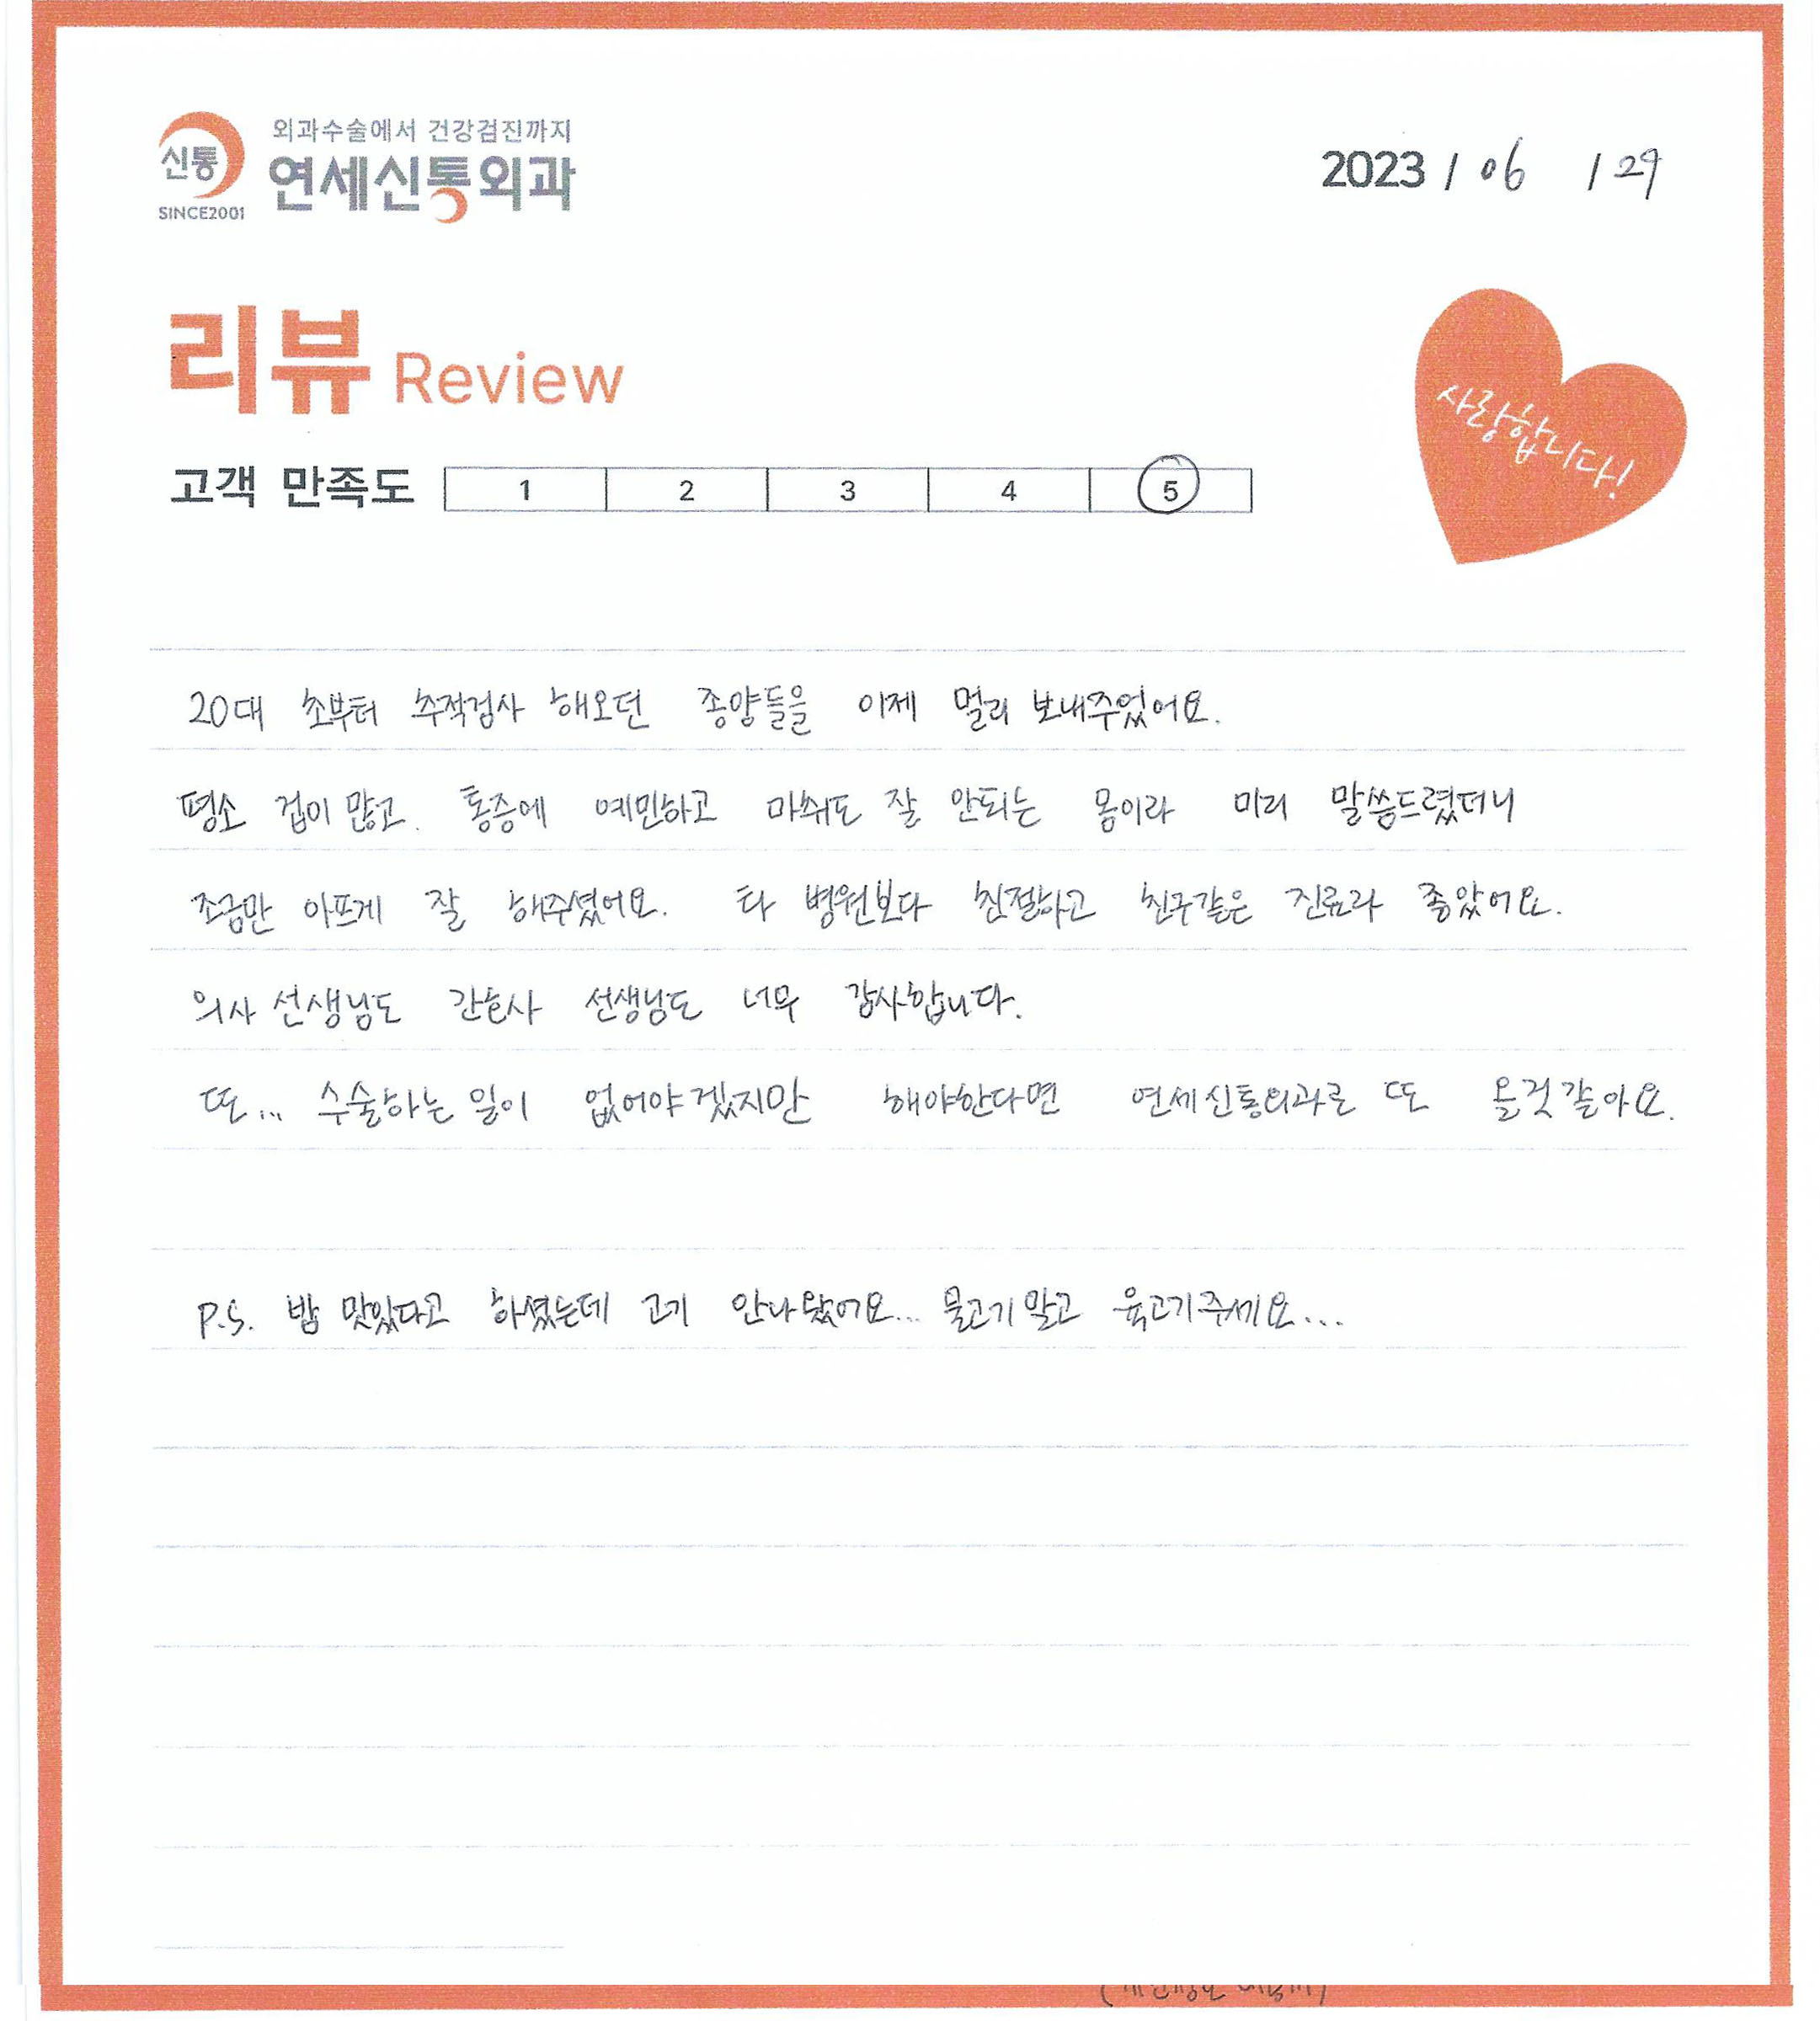 신통
SINCE2001
외과수술에서 건강검진까지
연세신통외과
2023 / 06 / 29
리뷰 Review
사랑합니다!
고객 만족도 1 2 3 4 5
20대 초부터 추적검사 해오던 종양들을 이제 멀리 보내주었어요.
평소 겁이 많고. 통증에 예민하고 마취도 잘 안되는 몸이라 미리 말씀드렸더니
조금만 아프게 잘 해주셨어요. 타 병원보다 친절하고 친구같은 진료라 좋았어요.
의사 선생님도 간호사 선생님도 너무 감사합니다.
또... 수술하는 일이 없어야겠지만 해야한다면 연세신통외과로 또 올것같아요.
P.S. 밥 맛있다고 하셨는데 고기 안나왔어요... 물고기 말고 육고기주세요...